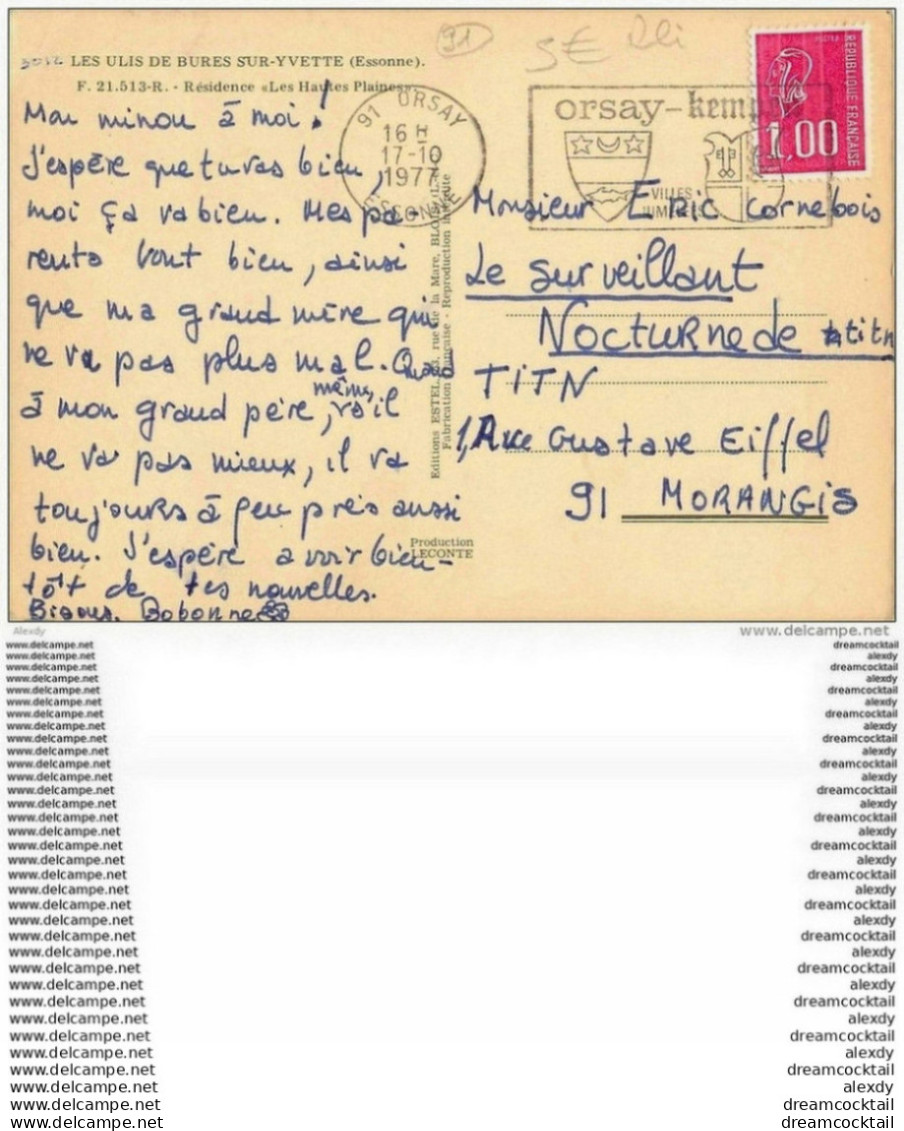 91
5€
LES ULIS DE BURES SUR-YVETTE (Essonne).
F. 21.513-R. - Résidence «Les Hautes Plaines»
Mon minou à moi!
J'espère que tu vas bien,
moi ça va bien. Mes pa-
rents vont bien, ainsi
que ma grand mère qui
ne va pas plus mal. Quand
à mon grand père, même, s'il
ne va pas mieux, il va
toujours à peu près aussi
bien. J'espère avoir bien-
tôt de tes nouvelles.
Bisous, Bobonne
91 ORSAY
16 H
17-10
1977
ESSONNE
orsay-kemp
VILLES
JUMELÉES
REPUBLIQUE FRANÇAISE
1,00
Editions ESTEL, rue de la Mare, BLOIS
Fabrication Française - Reproduction Interdite
Production
LECONTE
Monsieur Eric Cornebois
Le surveillant
Nocturne de titn
TITN
1, Ave Gustave Eiffel
91 MORANGIS
Alexdy
www.delcampe.net
www.delcampe.net dreamcocktail
www.delcampe.net alexdy
www.delcampe.net dreamcocktail
www.delcampe.net alexdy
www.delcampe.net dreamcocktail
www.delcampe.net alexdy
www.delcampe.net dreamcocktail
www.delcampe.net alexdy
www.delcampe.net dreamcocktail
www.delcampe.net alexdy
www.delcampe.net dreamcocktail
www.delcampe.net alexdy
www.delcampe.net dreamcocktail
www.delcampe.net alexdy
www.delcampe.net dreamcocktail
www.delcampe.net alexdy
www.delcampe.net dreamcocktail
www.delcampe.net alexdy
www.delcampe.net dreamcocktail
www.delcampe.net alexdy
www.delcampe.net dreamcocktail
www.delcampe.net alexdy
www.delcampe.net dreamcocktail
www.delcampe.net alexdy
www.delcampe.net dreamcocktail
www.delcampe.net alexdy
www.delcampe.net dreamcocktail
www.delcampe.net alexdy
www.delcampe.net dreamcocktail
www.delcampe.net alexdy
www.delcampe.net dreamcocktail
www.delcampe.net alexdy
www.delcampe.net dreamcocktail
www.delcampe.net dreamcocktail